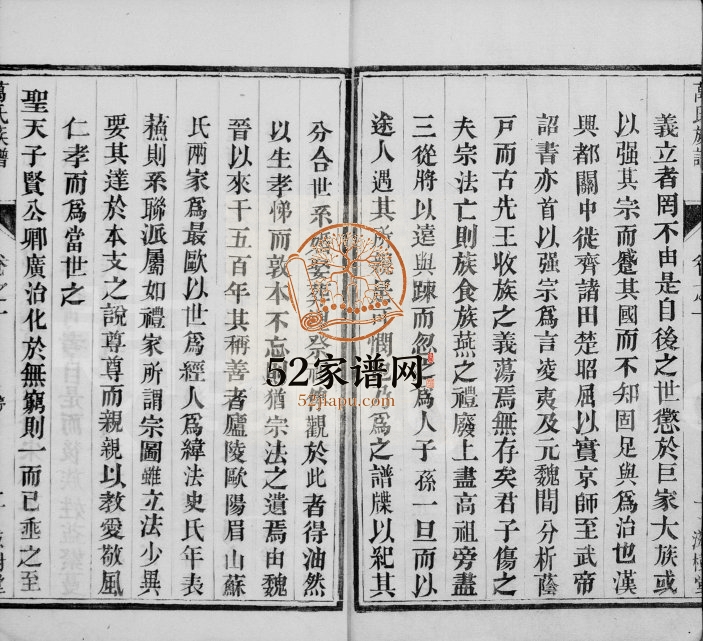 義立者罔不由是自後之世懲於巨家大族或
以强其宗而蹙其國而不知固足與爲治也漢
興都關中徙齊諸田楚昭屈以實京師至武帝
詔書亦首以强宗爲言凌夷及元魏間分析蔭
戸而古先王收族之義蕩焉無存矣君子傷之
夫宗法亡則族食族燕之禮廢上盡高祖旁盡
三從將以達與踈而忽之爲人子孫一旦而以
途人遇其所親
爲之譜牒以紀其
分合世系
觀於此者得油然
以生孝悌而敦本不忘
猶宗法之遺焉由魏
晉以來千五百年其稱善者廬陵歐陽眉山蘇
氏兩家爲最歐以世爲經人爲緯法史氏年表
蘓則系聯派屬如禮家所謂宗圖雖立法少異
要其達於本支之說尊尊而親親以教愛敬風
仁孝而爲當世之
聖天子賢公卿廣治化於無窮則一而已乖之至
萬氏族譜
卷之一
萬氏族譜
卷之一
52家谱网
52jiapu.com